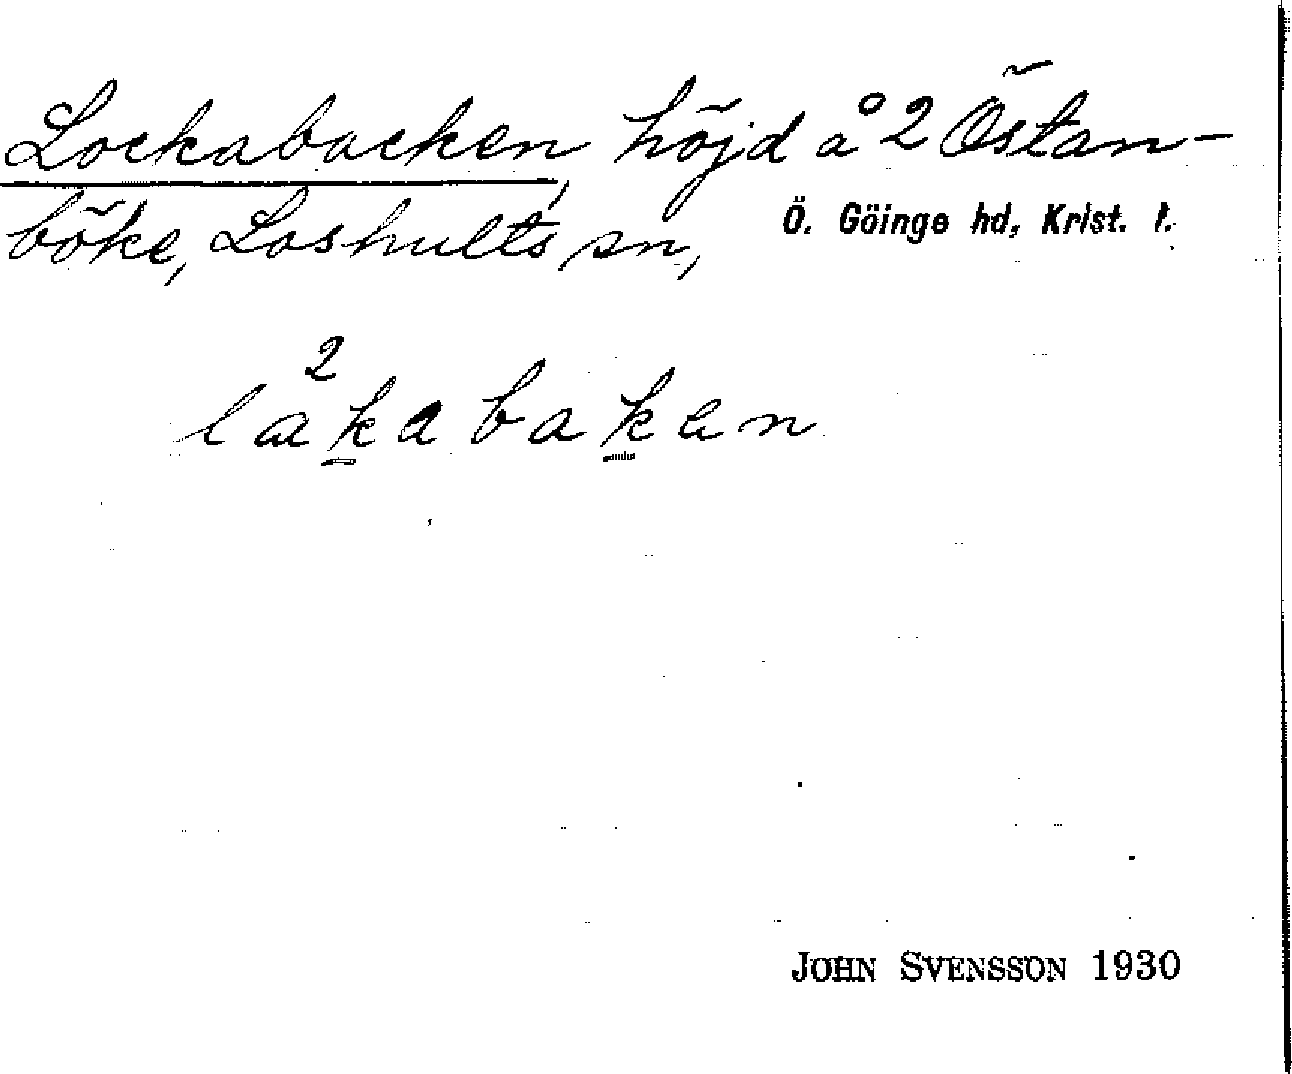 Lockabacken, höjd å 2 Östan-
böke, Loshults sn, Ö. Göinge hd, Krist. l.
2
lakabaken
JOHN SVENSSON 1930